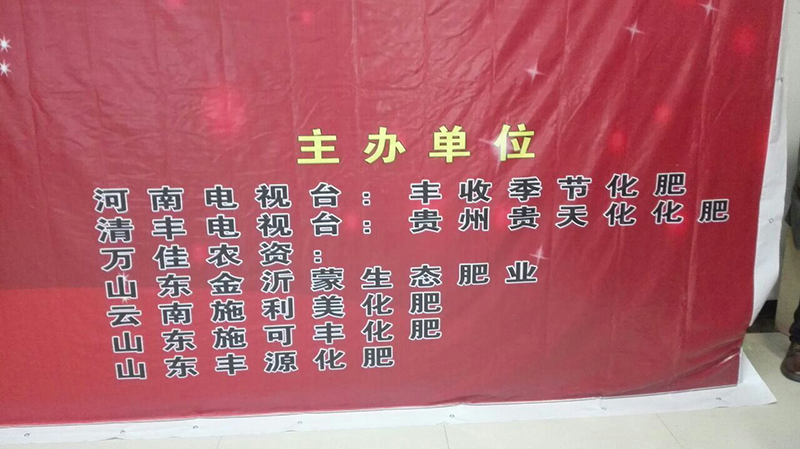 主办单位
河南电视台：丰收季节化肥
清丰电视台：贵州贵天化化肥
万佳农资：
山东金沂蒙生态肥业
云南施利美化肥
山东施可丰化肥
山东丰源化肥